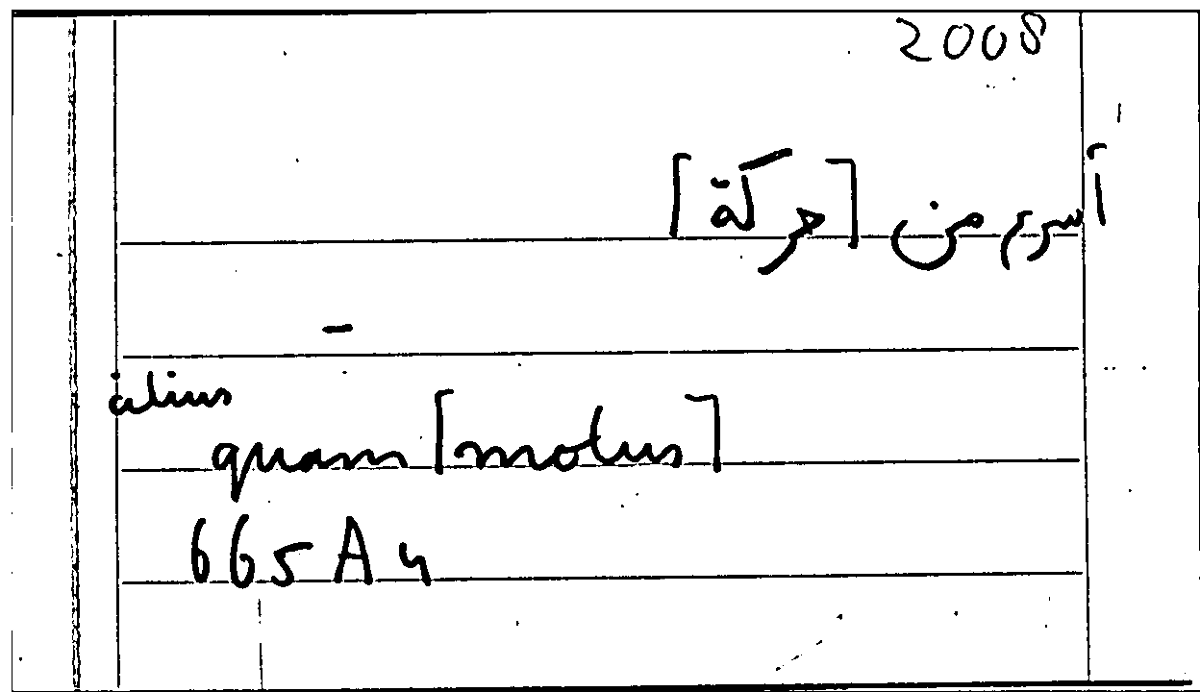 2008
أسرع من [حركة]
-
citius
quam [motus]
665 A 4